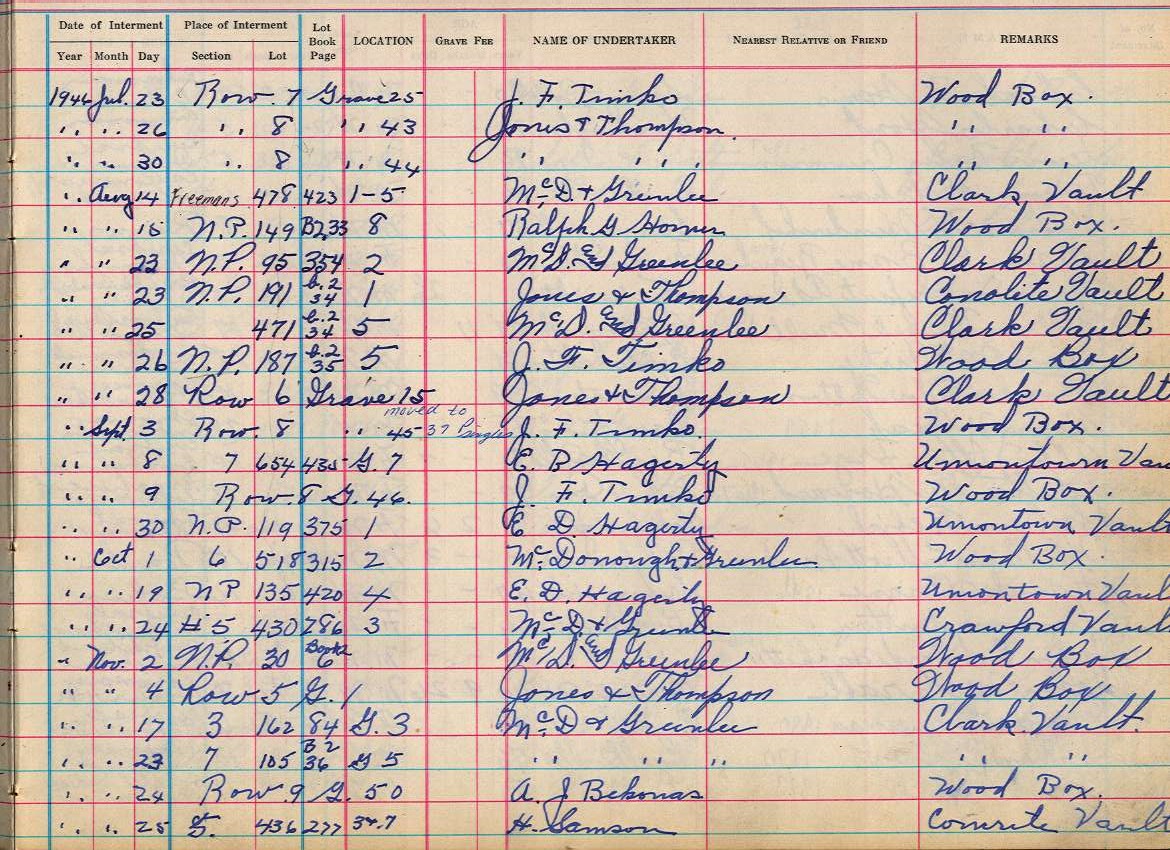 Date of Interment Place of Interment Lot Book Page LOCATION GRAVE FEE NAME OF UNDERTAKER NEAREST RELATIVE OR FRIEND REMARKS
Year Month Day Section Lot
1946 Jul. 23 Row. 7 Grave 25 J. F. Timko Wood Box.
" " 26 " 8 " 43 Jones & Thompson. " "
" " 30 " 8 " 44 " " " " "
" Aug 14 Freemans 478 423 1-5 McD. & Greenlee Clark Vault
" " 15 N.P. 149 B233 8 Ralph G Horner Wood Box.
" " 23 N.P. 95 354 2 McD. And Greenlee Clark Vault
" " 23 N.P. 191 b.2 34 1 Jones & Thompson Conolite Vault
" " 25 471 b.2 34 5 McD. And Greenlee Clark Vault
" " 26 N.P. 187 b.2 35 5 J. F. Timko Wood Box
" " 28 Row 6 Grave 15 Jones & Thompson Clark Vault
" Sept. 3 Row. 8 " 45 moved to 37 Singles J. F. Timko. Wood Box.
" " 8 7 654 435 G. 7 E. B Hagerty Uniontown Vau
" " 9 Row. 8 G. 46. J. F. Timko Wood Box.
" " 30 N.P. 119 375 1 E D Hagerty Uniontown Vault
" Oct 1 6 518 315 2 McDonough & Greenlee Wood Box.
" " 19 NP 135 420 4 E. D. Hagerty Uniontown Vaul
" " 24 #5 430 286 3 McD. & Greenlee Crawford Vaul
" Nov. 2 N.P. 30 Book2 6 McD. And Greenlee Wood Box
" " 4 Row 5 G. 1 Jones & Thompson Wood Box
" " 17 3 162 84 G. 3 McD & Greenlee Clark Vault.
" " 23 7 105 B 2 36 G 5 " " " " "
" " 24 Row. 9 G. 50 A. J Bekonas Wood Box.
" " 25 5. 436 277 H. Samson Concrete Vault